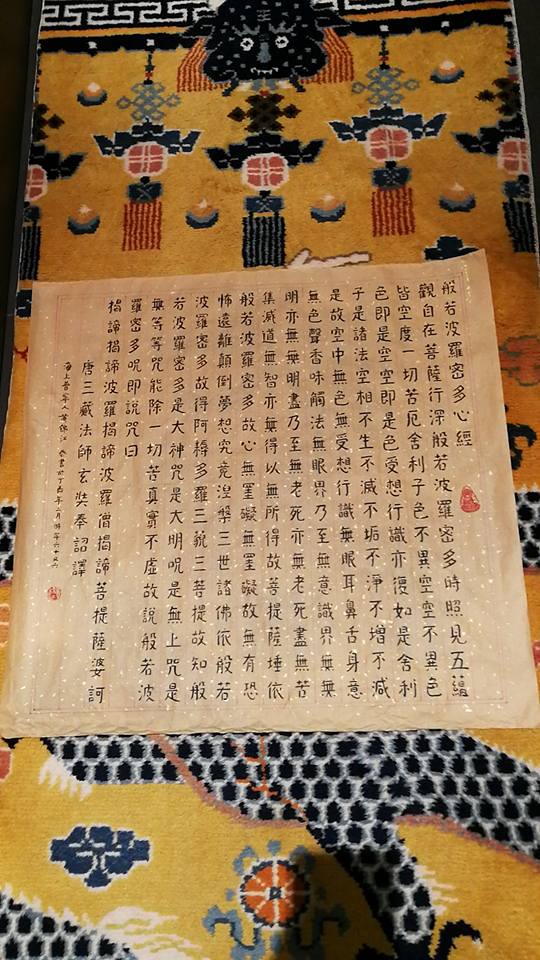 般若波羅密多心經
觀自在菩薩行深般若波羅密多時照見五蘊
皆空度一切苦厄舍利子色不異空空不異色
色即是空空即是色受想行識亦復如是舍利
子是諸法空相不生不滅不垢不淨不增不減
是故空中無色無受想行識無眼耳鼻舌身意
無色聲香味觸法無眼界乃至無意識界無無
明亦無無明盡乃至無老死亦無老死盡無苦
集滅道無智亦無得以無所得故菩提薩埵依
般若波羅密多故心無罣礙無罣礙故無有恐
怖遠離顛倒夢想究竟涅槃三世諸佛依般若
波羅密多故得阿耨多羅三藐三菩提故知般
若波羅密多是大神咒是大明咒是無上咒是
無等等咒能除一切苦真實不虛故說般若波
羅密多呪即說咒曰
揭諦揭諦波羅揭諦波羅僧揭諦菩提薩婆訶
唐三藏法師玄奘奉詔譯
海上 人 書於丁 年二月 年六十